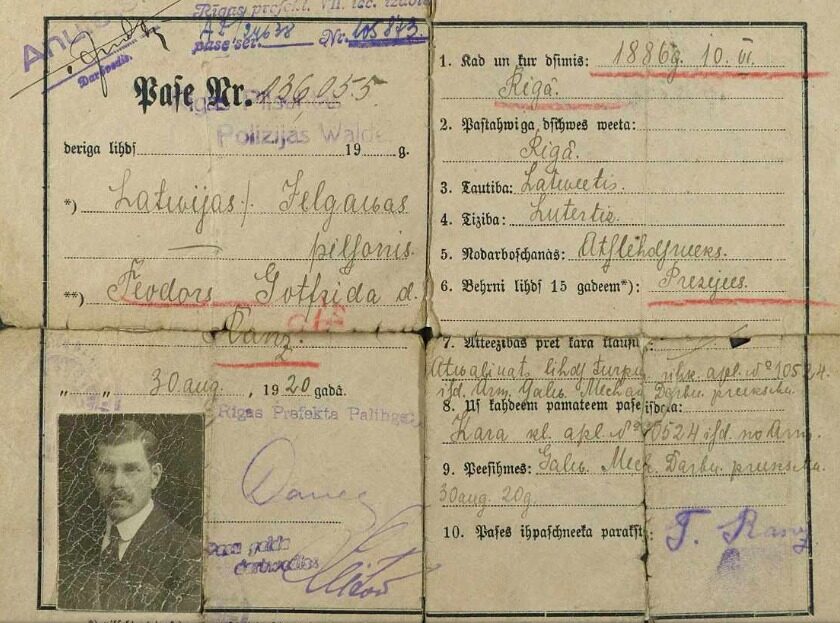 Rīgas prefekt. VII. iec.
AZ 24638
pase ser. Nr. 105873.
Pase Nr. 136055.
Polizijas Walde
deriga lihds 19 g.
*) Latwijas / Jelgawas
pilsonis.
**) Feodors Gotfrida d.
Ranz
" " 30 aug. , 1920 gadâ.
Rīgas Prefekta Palihgs
1. Kad un kur dsimis: 1886 g. 10. VI.
Rigâ.
2. Pastahwiga dsihwes weeta:
Rigâ.
3. Tautiba: Latweetis.
4. Tiziba: Lutertiz.
5. Nodarboschanàs: Atslehdsneeks.
6. Behrni lihds 15 gadeem*): Prezejees.
7. Atteezibas pret kara klausību:
Atwalinats lihds turpm. apl. № 10524
isd. Arm. Galw. Mech. Darbn. preekschn.
8. Us kahdeem pamateem pase isdota:
Kara kl. apl. № 10524 isd. no Arm.
9. Peesihmes: Galw. Mech. Darbn. preekschn.
30 aug. 20 g.
10. Pases ihpaschneeka paraksts: F. Ranz